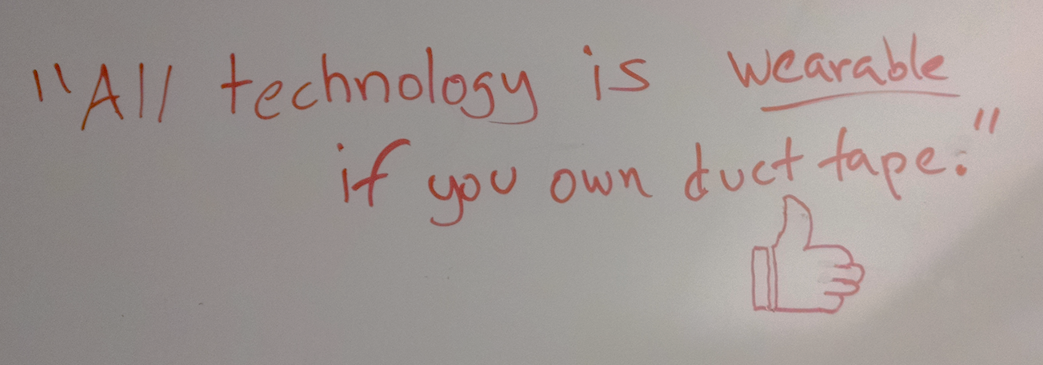 "All technology is wearable
if you own duct tape."